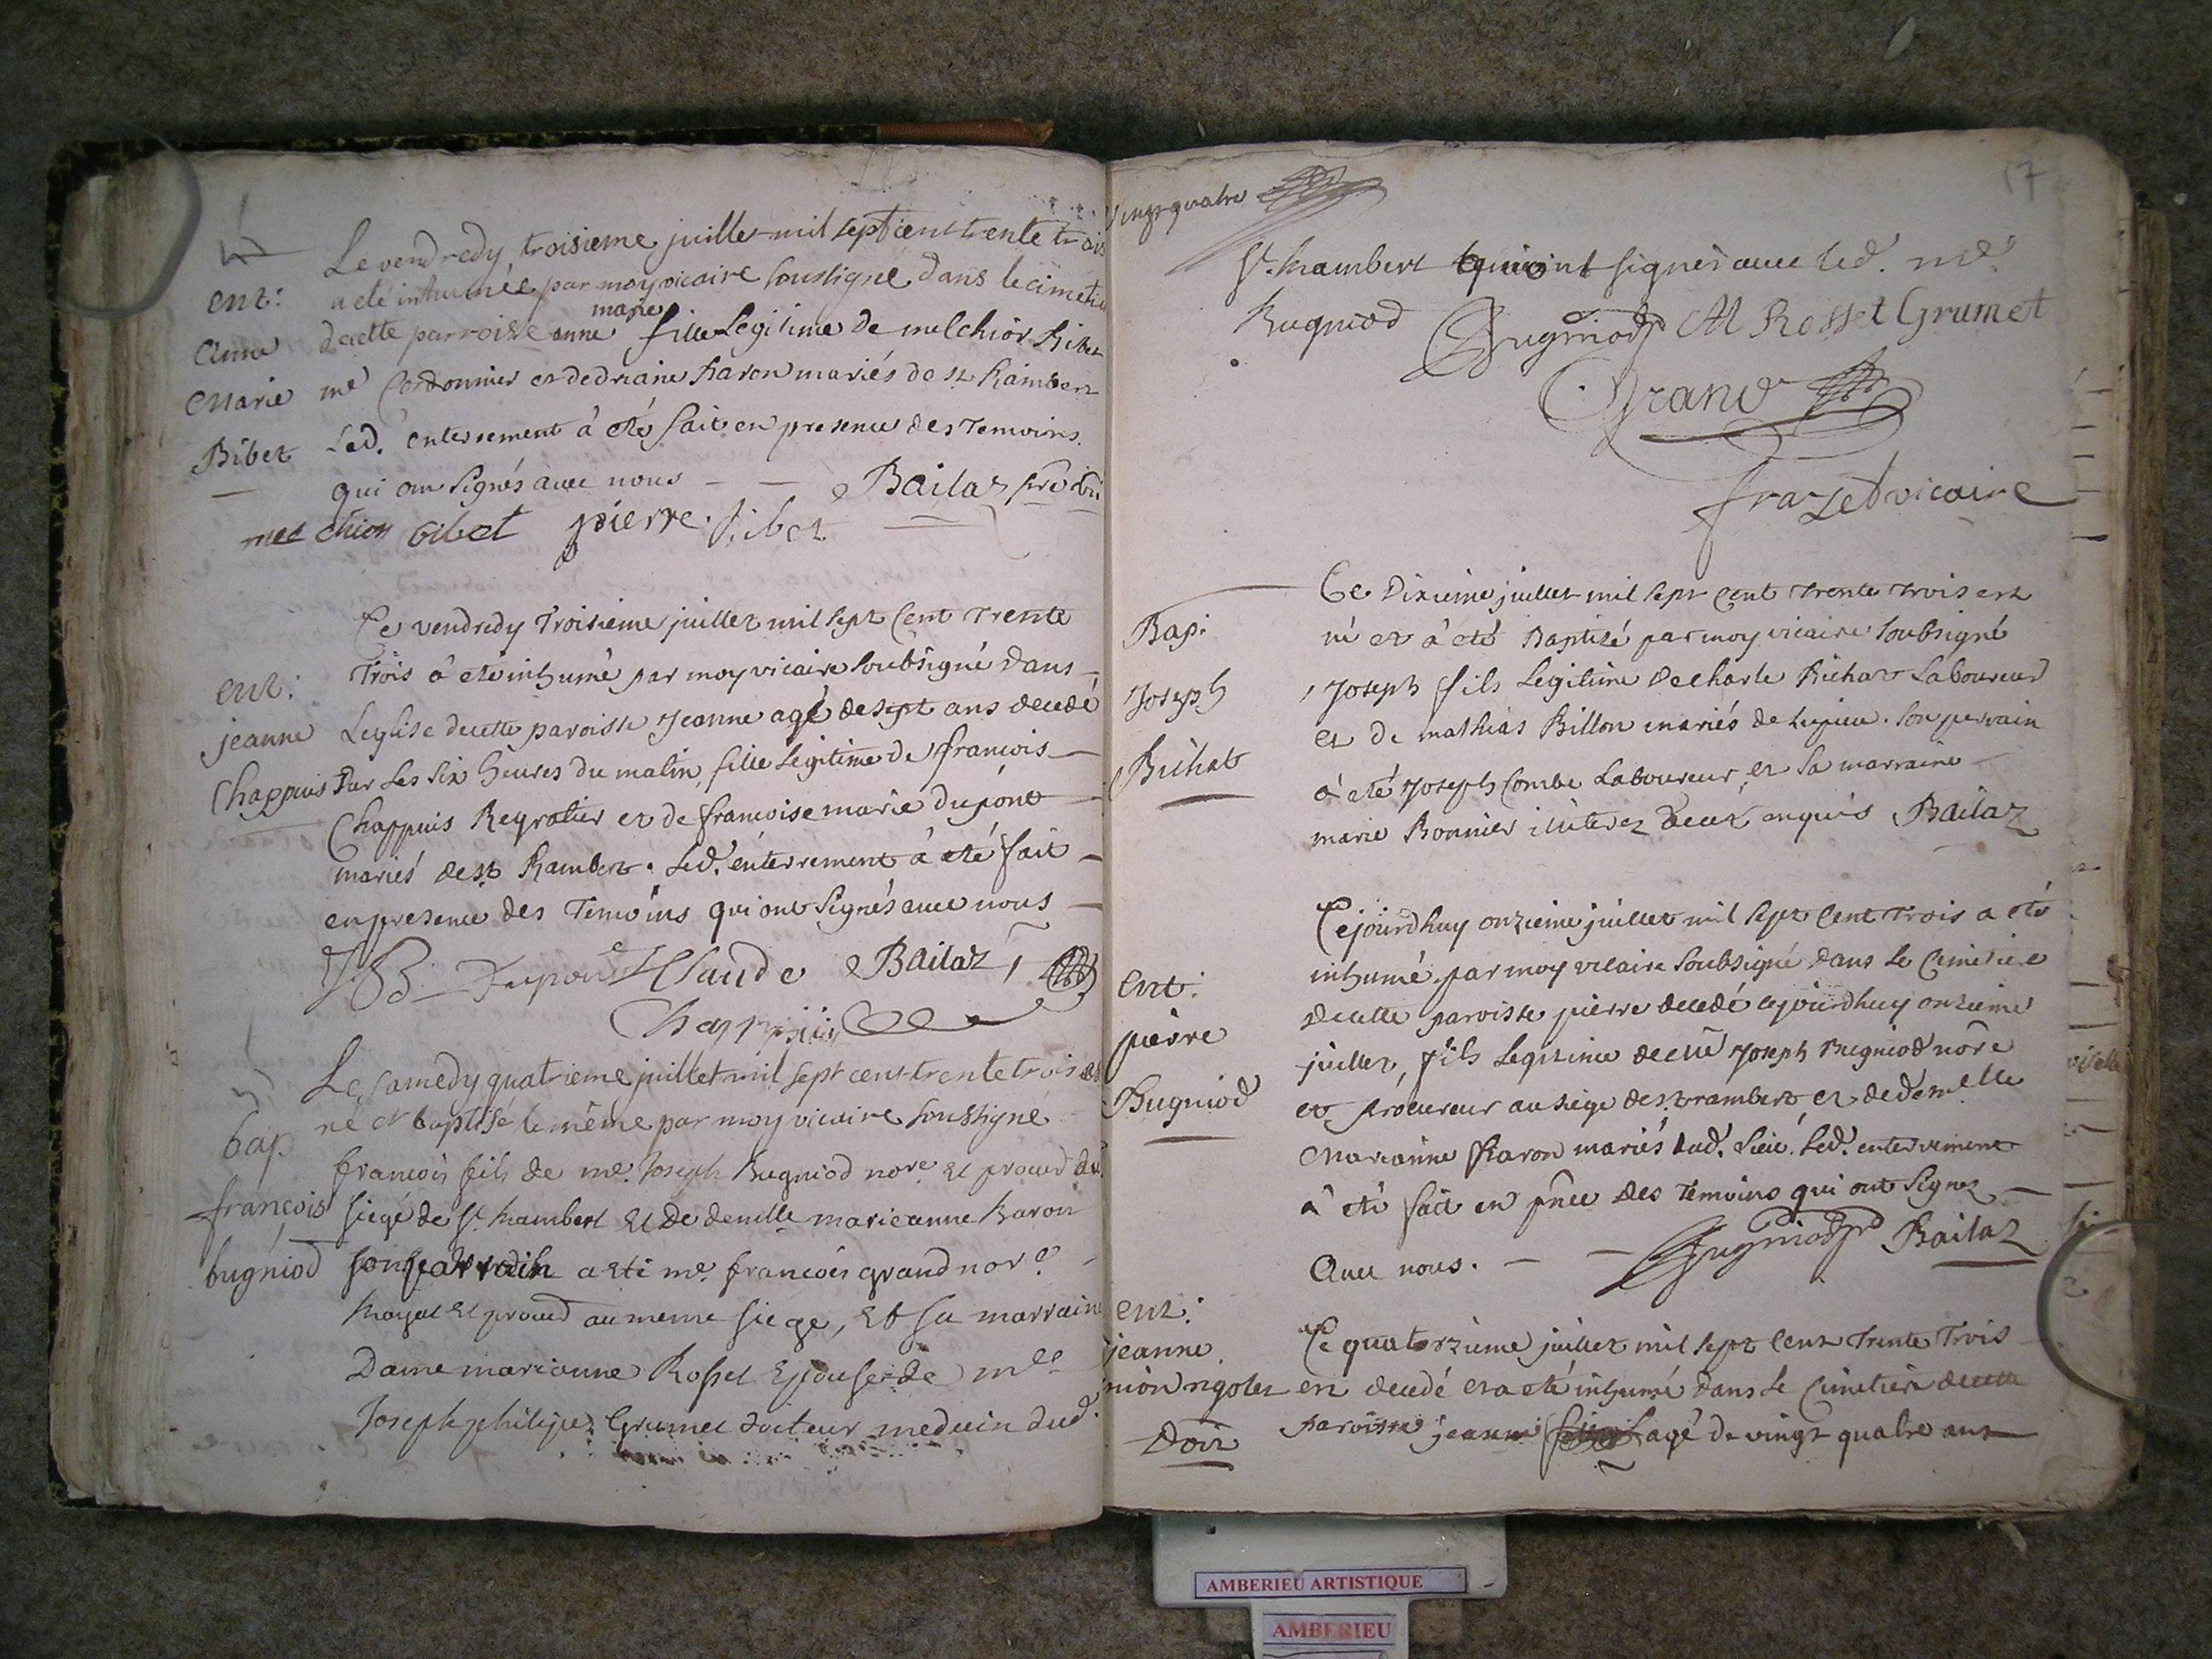 Le vendredy troisieme juillet mil sept cent trente trois
ent: a eté inhumée par moy vicaire soussigné dans le cimetie
Anne decette parroisse anne marie fille Legitime de melchior Bibet
Marie me Cordonnier et de driane Baron mariés de st Rambert
Bibet Led. enterrement à eté fait en presence des Temoins
qui ont signés avec nous - - Bailaz
melchior bibet pierre bibet
Ce vendredy Troisieme juillet mil sept Cent Trente
ent: Trois à eté inhumé par moy vicaire soubsigné dans
jeanne Leglise decette paroisse Jeanne agé de sept ans decedé
Chappuis sur Les six heures du matin, fille Legitime de francois
Chappuis Regratier et de francoise marie dupont
mariés de st Rambert. Led. enterrement à eté fait
en presence des Temoins qui ont signés avec nous
Dupont Claude Bailaz
Chappuis
Le samedy quatrieme juillet mil sept cent trente trois est
bap né et baptisé le même par moy vicaire soussigné
francois fils de me. Joseph Bugniod nore. et procud au
françois siege de St. Rambert et de demelle marieanne Baron
bugniod son parrain a eté me. francois grand nore.
Royal et procud au meme siege, et sa marraine
Dame marianne Rosset Epouse de mre
Joseph philipe Grumet docteur medecin dud.
vingt quatre
17
St. Rambert qui ont signés avec led. me.
Bugniod Bugniod M Rosset Grumet
Grand
frazet vicaire
Ce Dixieme juillet mil sept Cent Trente Trois est
Bap: né et à eté Baptizé par moy vicaire soubsigné
Joseph Joseph fils Legitime de charle Bichat Laboureur
Bichat et de mathias Billon mariés de Lupieu. Son perrain
à eté Joseph Combe Laboureur, et sa marraine
marie Bonnier illiterez deux enquis Bailaz
Cejourdhuy onzieme juillet mil sept Cent Trois a eté
Ent: inhumé par moy vicaire soubsigné dans Le Cimetiere
pierre decette paroisse pierre decedé cejourdhuy onzieme
Bugniod juillet, fils Legitime de me Joseph Bugniod nore
et procureur au siege de st rambert, et de demelle
Marianne Baron mariés dud. Lieu. Led. enterrement
à eté fait en pnce des Temoins qui ont signez
Avec nous. - - Bugniod Bailaz
ent: Ce quatorzieme juillet mil sept Cent Trente Trois
jeanne est decedé et a eté inhumé dans Le Cimetiere decette
paroisse jeanne agé de vingt quatre ans
AMBERIEU ARTISTIQUE
AMBERIEU